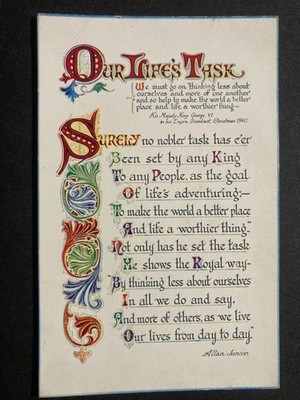 OUR LIFE'S TASK
We must go on thinking less about
ourselves and more of one another
and so help to make the world a better
place and life a worthier thing—
His Majesty King George VI
in his Empire Broadcast, Christmas 1940.
SURELY no nobler task has e'er
Been set by any King
To any People, as the goal
Of life's adventuring:-
To make the world a better place
And life a worthier thing."
Not only has he set the task
He shows the Royal way-
"By thinking less about ourselves
In all we do and say,
And more of others, as we live
Our lives from day to day."
Allan Junior.